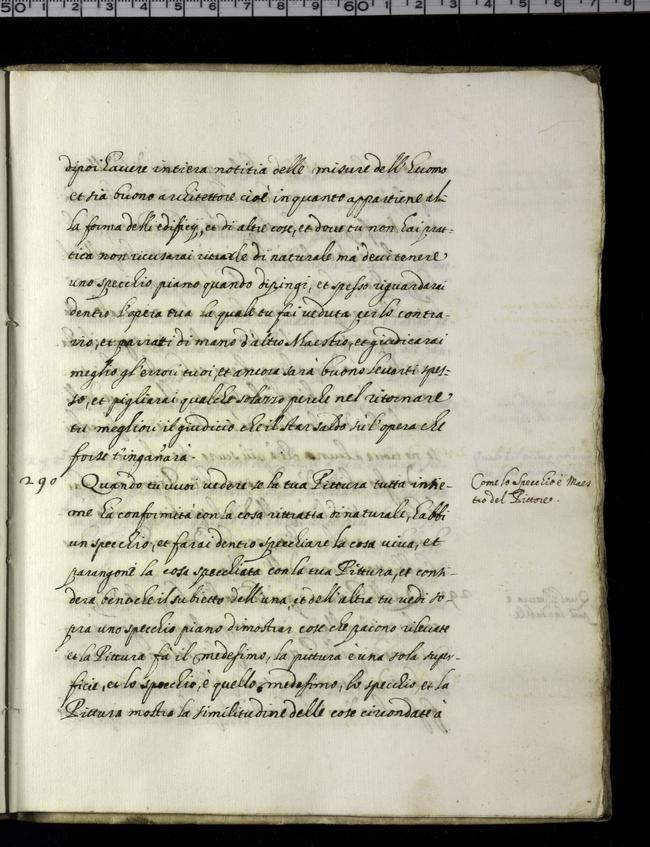 dipoi havere intiera notitia delle misure dell'huomo
et sia buono architettore cioè in quanto appartiene al-
la forma delli edificij, et di altre cose, et dove tu non hai prat-
tica non ricusarai ritrarle di naturale mà devi tenere
uno specchio piano quando dipingi, et spesso riguardarai
dentro l'opera tua la quale tu fai veduta per lo contra-
rio, et parratti di mano d'altro Maestro, et giudicarai
meglio gl'errori tuoi, et ancora sarà buono levarti spes-
so, et pigliarai qualche solazzo perche nel ritornare
tu megliori il giudicio che il star saldo sù l'opera che
forte t'inganarà.
290 Quando tu vuoi vedere se la tua Pittura tutta insie-
me hà conformità con la cosa rittratta di naturale, habbi
un specchio, et farai dentro specchiare la cosa viva, et
parangone la cosa specchiata con la tua Pittura, et consi-
dera bene che il subietto dell'una, et dell'altra tu vedi so
pra uno specchio piano dimostrar cose che paiono rilevate
et la Pittura fà il medesimo, la pittura è una sola super-
ficie, et lo specchio, è quello medesimo, lo specchio, et la
Pittura mostra la similitudine delle cose circondate à
Come lo Specchio è Maes
tro del Pittore.